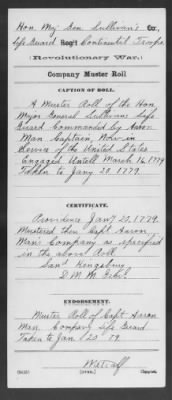 Hon. Maj. Gen. Sullivan's
Life Guard Reg't Continental Troops
(Revolutionary War.)
Company Muster Roll
CAPTION OF ROLL.
A Muster Roll of the Hon.
Major General Sullivans Life
Guard Commanded by Aaron
Man Captain, Now in
Service of the United States
Engaged Untill March 16, 1779
Taken to Jany 20, 1779.
CERTIFICATE.
Providence Jany 20, 1779.
Mustered then Capt Aaron
Man's Company as specified
in the above Roll
Saml Kingsbury
D. M. M.
ENDORSEMENT.
Muster Roll of Capt Aaron
Man Company Life Guard
Taken to Jan 20 79.
Metcalf
Copyist.